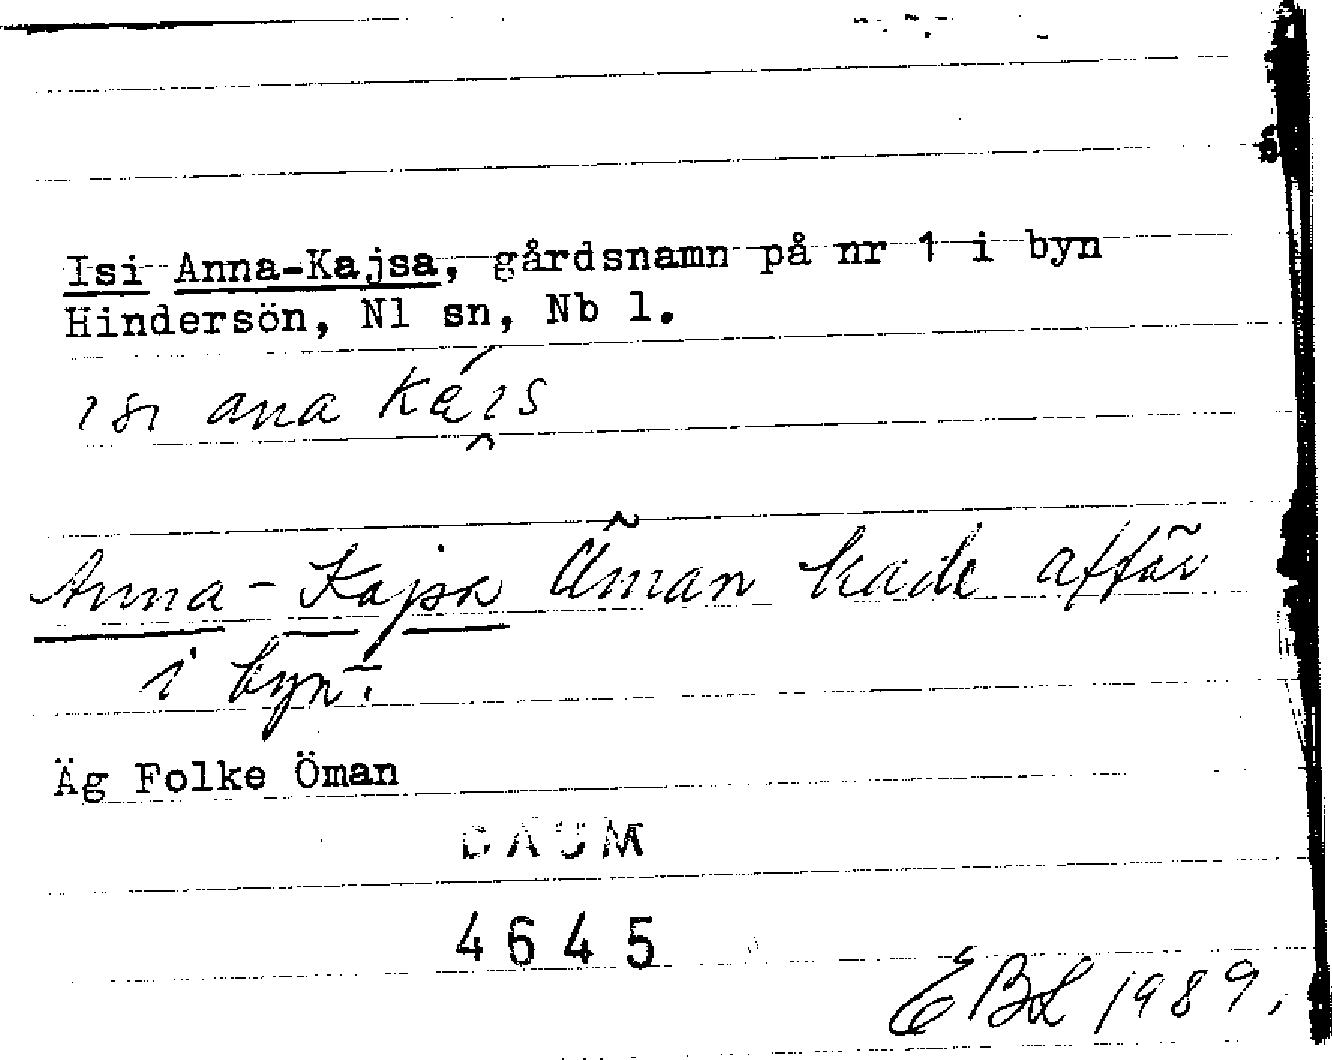 Isi Anna-Kajsa, gårdsnamn på nr 1 i byn
Hindersön, Nl sn, Nb l.
ana
Anna-Kajsa Öman hade affär
i byn.
Äg Folke Öman
DAUM
4645
EBL 1989.